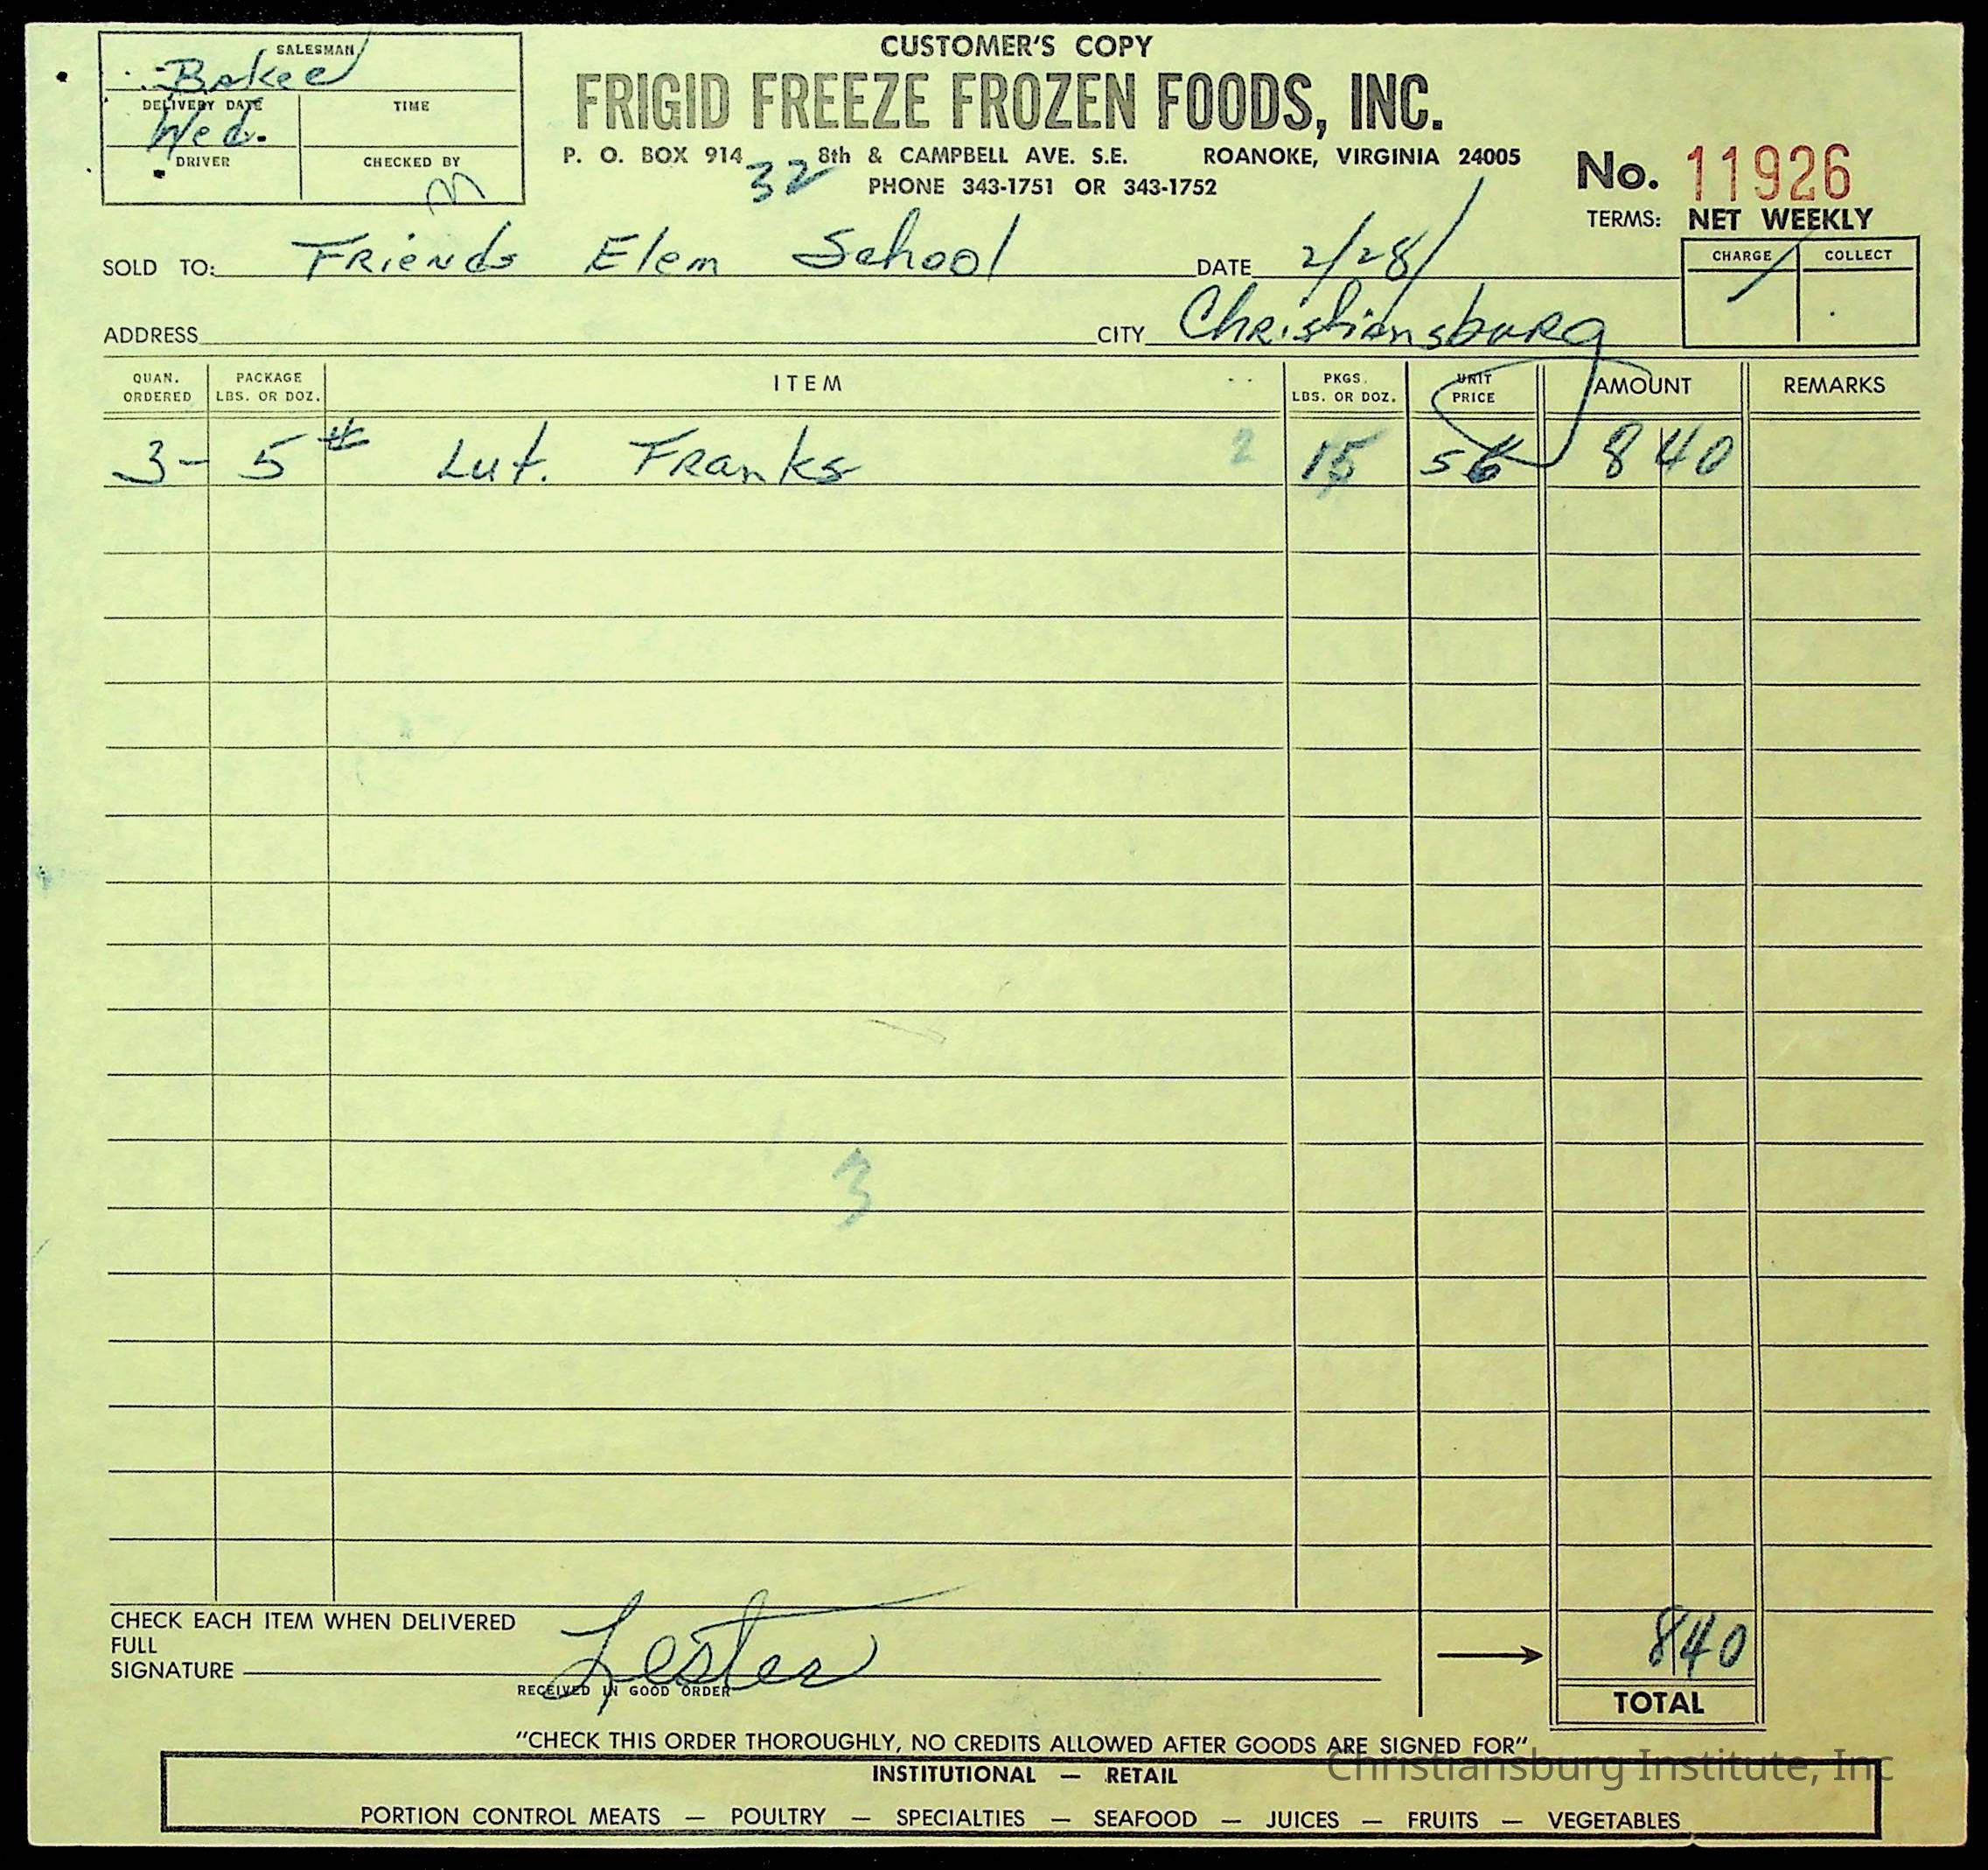 CUSTOMER'S COPY
FRIGID FREEZE FROZEN FOODS, INC.
P. O. BOX 914 8th & CAMPBELL AVE. S.E. ROANOKE, VIRGINIA 24005
32
PHONE 343-1751 OR 343-1752
SALESMAN
DELIVERY DATE TIME
Wed.
DRIVER CHECKED BY
No. 11926
TERMS: NET WEEKLY
CHARGE COLLECT
SOLD TO: Friends Elem School DATE 2/28/
ADDRESS CITY Christiansburg
QUAN. ORDERED PACKAGE LBS. OR DOZ. ITEM PKGS. LBS. OR DOZ. UNIT PRICE AMOUNT REMARKS
3- 5# Lut. Franks 2 15 56 8 40
3
CHECK EACH ITEM WHEN DELIVERED
FULL
SIGNATURE Lester
RECEIVED IN GOOD ORDER
840
TOTAL
"CHECK THIS ORDER THOROUGHLY, NO CREDITS ALLOWED AFTER GOODS ARE SIGNED FOR"
Christiansburg Institute, Inc
INSTITUTIONAL — RETAIL
PORTION CONTROL MEATS — POULTRY — SPECIALTIES — SEAFOOD — JUICES — FRUITS — VEGETABLES